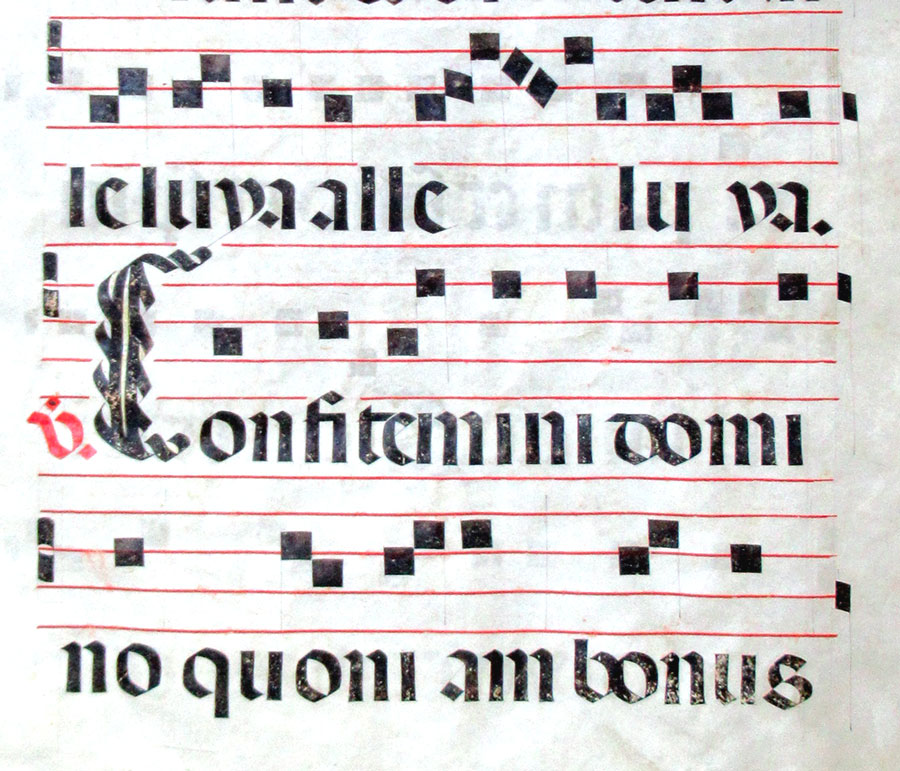 leluya alle lu ya.
V. Confitemini domi
no quoni am bonus